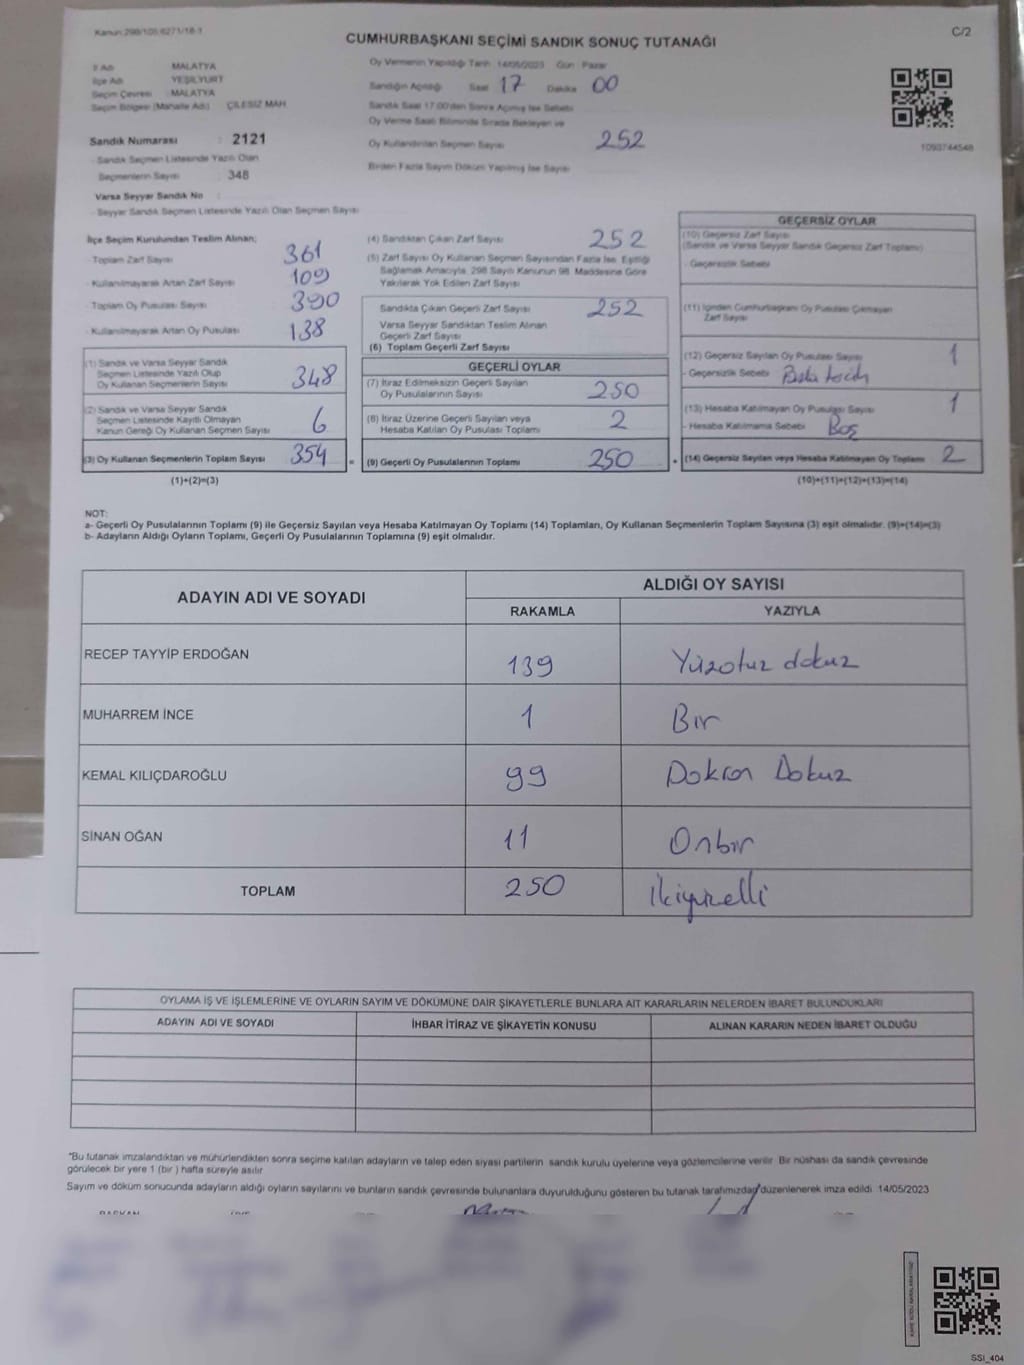 Kanun:298/105;6271/18-1
C/2
CUMHURBAŞKANI SEÇİMİ SANDIK SONUÇ TUTANAĞI
İl Adı MALATYA
İlçe Adı YEŞİLYURT
Seçim Çevresi : MALATYA
Seçim Bölgesi (Mahalle Adı) ÇİLESİZ MAH
Oy Vermenin Yapıldığı Tarih 14/05/2023 Gün : Pazar
Sandığın Açıldığı Saat 17 Dakika 00
Sandık Saat 17:00'den Sonra Açılmış İse Sebebi
Oy Verme Saati Bitiminde Sırada Bekleyen ve
Oy Kullandırılan Seçmen Sayısı 252
Birden Fazla Sayım Döküm Yapılmış İse Sayısı
1093744548
Sandık Numarası : 2121
- Sandık Seçmen Listesinde Yazılı Olan
Seçmenlerin Sayısı : 348
Varsa Seyyar Sandık No :
- Seyyar Sandık Seçmen Listesinde Yazılı Olan Seçmen Sayısı
İlçe Seçim Kurulundan Teslim Alınan;
- Toplam Zarf Sayısı 361
- Kullanılmayarak Artan Zarf Sayısı 109
- Toplam Oy Pusulası Sayısı 390
- Kullanılmayarak Artan Oy Pusulası 138
(1) Sandık ve Varsa Seyyar Sandık
Seçmen Listesinde Yazılı Olup
Oy Kullanan Seçmenlerin Sayısı 348
(2) Sandık ve Varsa Seyyar Sandık
Seçmen Listesinde Kayıtlı Olmayan
Kanun Gereği Oy Kullanan Seçmen Sayısı 6
(3) Oy Kullanan Seçmenlerin Toplam Sayısı 354 =
(1)+(2)=(3)
(4) Sandıktan Çıkan Zarf Sayısı 252
(5) Zarf Sayısı Oy Kullanan Seçmen Sayısından Fazla İse, Eşitliği
Sağlamak Amacıyla, 298 Sayılı Kanunun 98. Maddesine Göre
Yakılarak Yok Edilen Zarf Sayısı
Sandıkta Çıkan Geçerli Zarf Sayısı 252
Varsa Seyyar Sandıktan Teslim Alınan
Geçerli Zarf Sayısı
(6) Toplam Geçerli Zarf Sayısı
GEÇERLİ OYLAR
(7) İtiraz Edilmeksizin Geçerli Sayılan
Oy Pusulalarının Sayısı 250
(8) İtiraz Üzerine Geçerli Sayılan veya
Hesaba Katılan Oy Pusulası Toplamı 2
(9) Geçerli Oy Pusulalarının Toplamı 250 +
GEÇERSİZ OYLAR
(10) Geçersiz Zarf Sayısı
(Sandık ve Varsa Seyyar Sandık Geçersiz Zarf Toplamı)
- Geçersizlik Sebebi
(11) İçinden Cumhurbaşkanı Oy Pusulası Çıkmayan
Zarf Sayısı
(12) Geçersiz Sayılan Oy Pusulası Sayısı 1
- Geçersizlik Sebebi
(13) Hesaba Katılmayan Oy Pusulası Sayısı 1
- Hesaba Katılmama Sebebi Boş
(14) Geçersiz Sayılan veya Hesaba Katılmayan Oy Toplamı 2
(10)+(11)+(12)+(13)=(14)
NOT:
a- Geçerli Oy Pusulalarının Toplamı (9) ile Geçersiz Sayılan veya Hesaba Katılmayan Oy Toplamı (14) Toplamları, Oy Kullanan Seçmenlerin Toplam Sayısına (3) eşit olmalıdır. (9)+(14)=(3)
b- Adayların Aldığı Oyların Toplamı, Geçerli Oy Pusulalarının Toplamına (9) eşit olmalıdır.
ADAYIN ADI VE SOYADI
ALDIĞI OY SAYISI
RAKAMLA YAZIYLA
RECEP TAYYİP ERDOĞAN 139 Yüzotuz dokuz
MUHARREM İNCE 1 Bır
KEMAL KILIÇDAROĞLU 99 Doksan Dokuz
SİNAN OĞAN 11 Onbır
TOPLAM 250 İkiyüzelli
OYLAMA İŞ VE İŞLEMLERİNE VE OYLARIN SAYIM VE DÖKÜMÜNE DAİR ŞİKAYETLERLE BUNLARA AİT KARARLARIN NELERDEN İBARET BULUNDUKLARI
ADAYIN ADI VE SOYADI İHBAR İTİRAZ VE ŞİKAYETİN KONUSU ALINAN KARARIN NEDEN İBARET OLDUĞU
*Bu tutanak imzalandıktan ve mühürlendikten sonra seçime katılan adayların ve talep eden siyasi partilerin sandık kurulu üyelerine veya gözlemcilerine verilir. Bir nüshası da sandık çevresinde
görülecek bir yere 1 (bir ) hafta süreyle asılır
Sayım ve döküm sonucunda adayların aldığı oyların sayılarını ve bunların sandık çevresinde bulunanlara duyurulduğunu gösteren bu tutanak tarafımızdan düzenlenerek imza edildi 14/05/2023
BAŞKAN
SSI_404